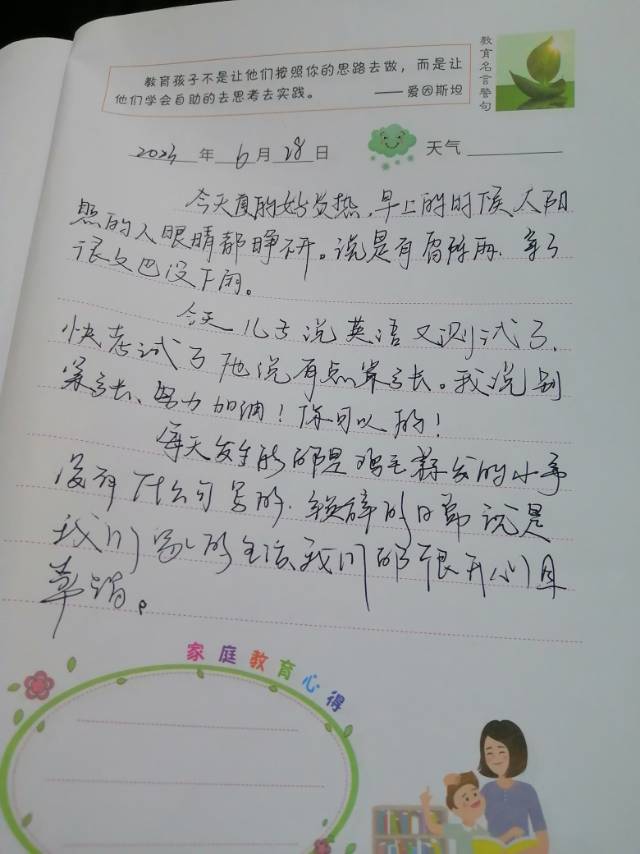 教育孩子不是让他们按照你的思路去做，而是让
他们学会自助的去思考去实践。 ——爱因斯坦
教育名言警句
2023年6月28日 天气
今天真的好发热，早上的时候太阳
照的人眼睛都睁不开。说是有雷阵雨，等了
很久也没下雨。
今天儿子说英语又测试了，
快考试了他说有点紧张。我说别
紧张、努力加油！你可以的！
每天发生的都是鸡毛蒜皮的小事
没有什么可写的，的日常就是
我们家的生活我们都很开心且
幸福。
家庭教育心得